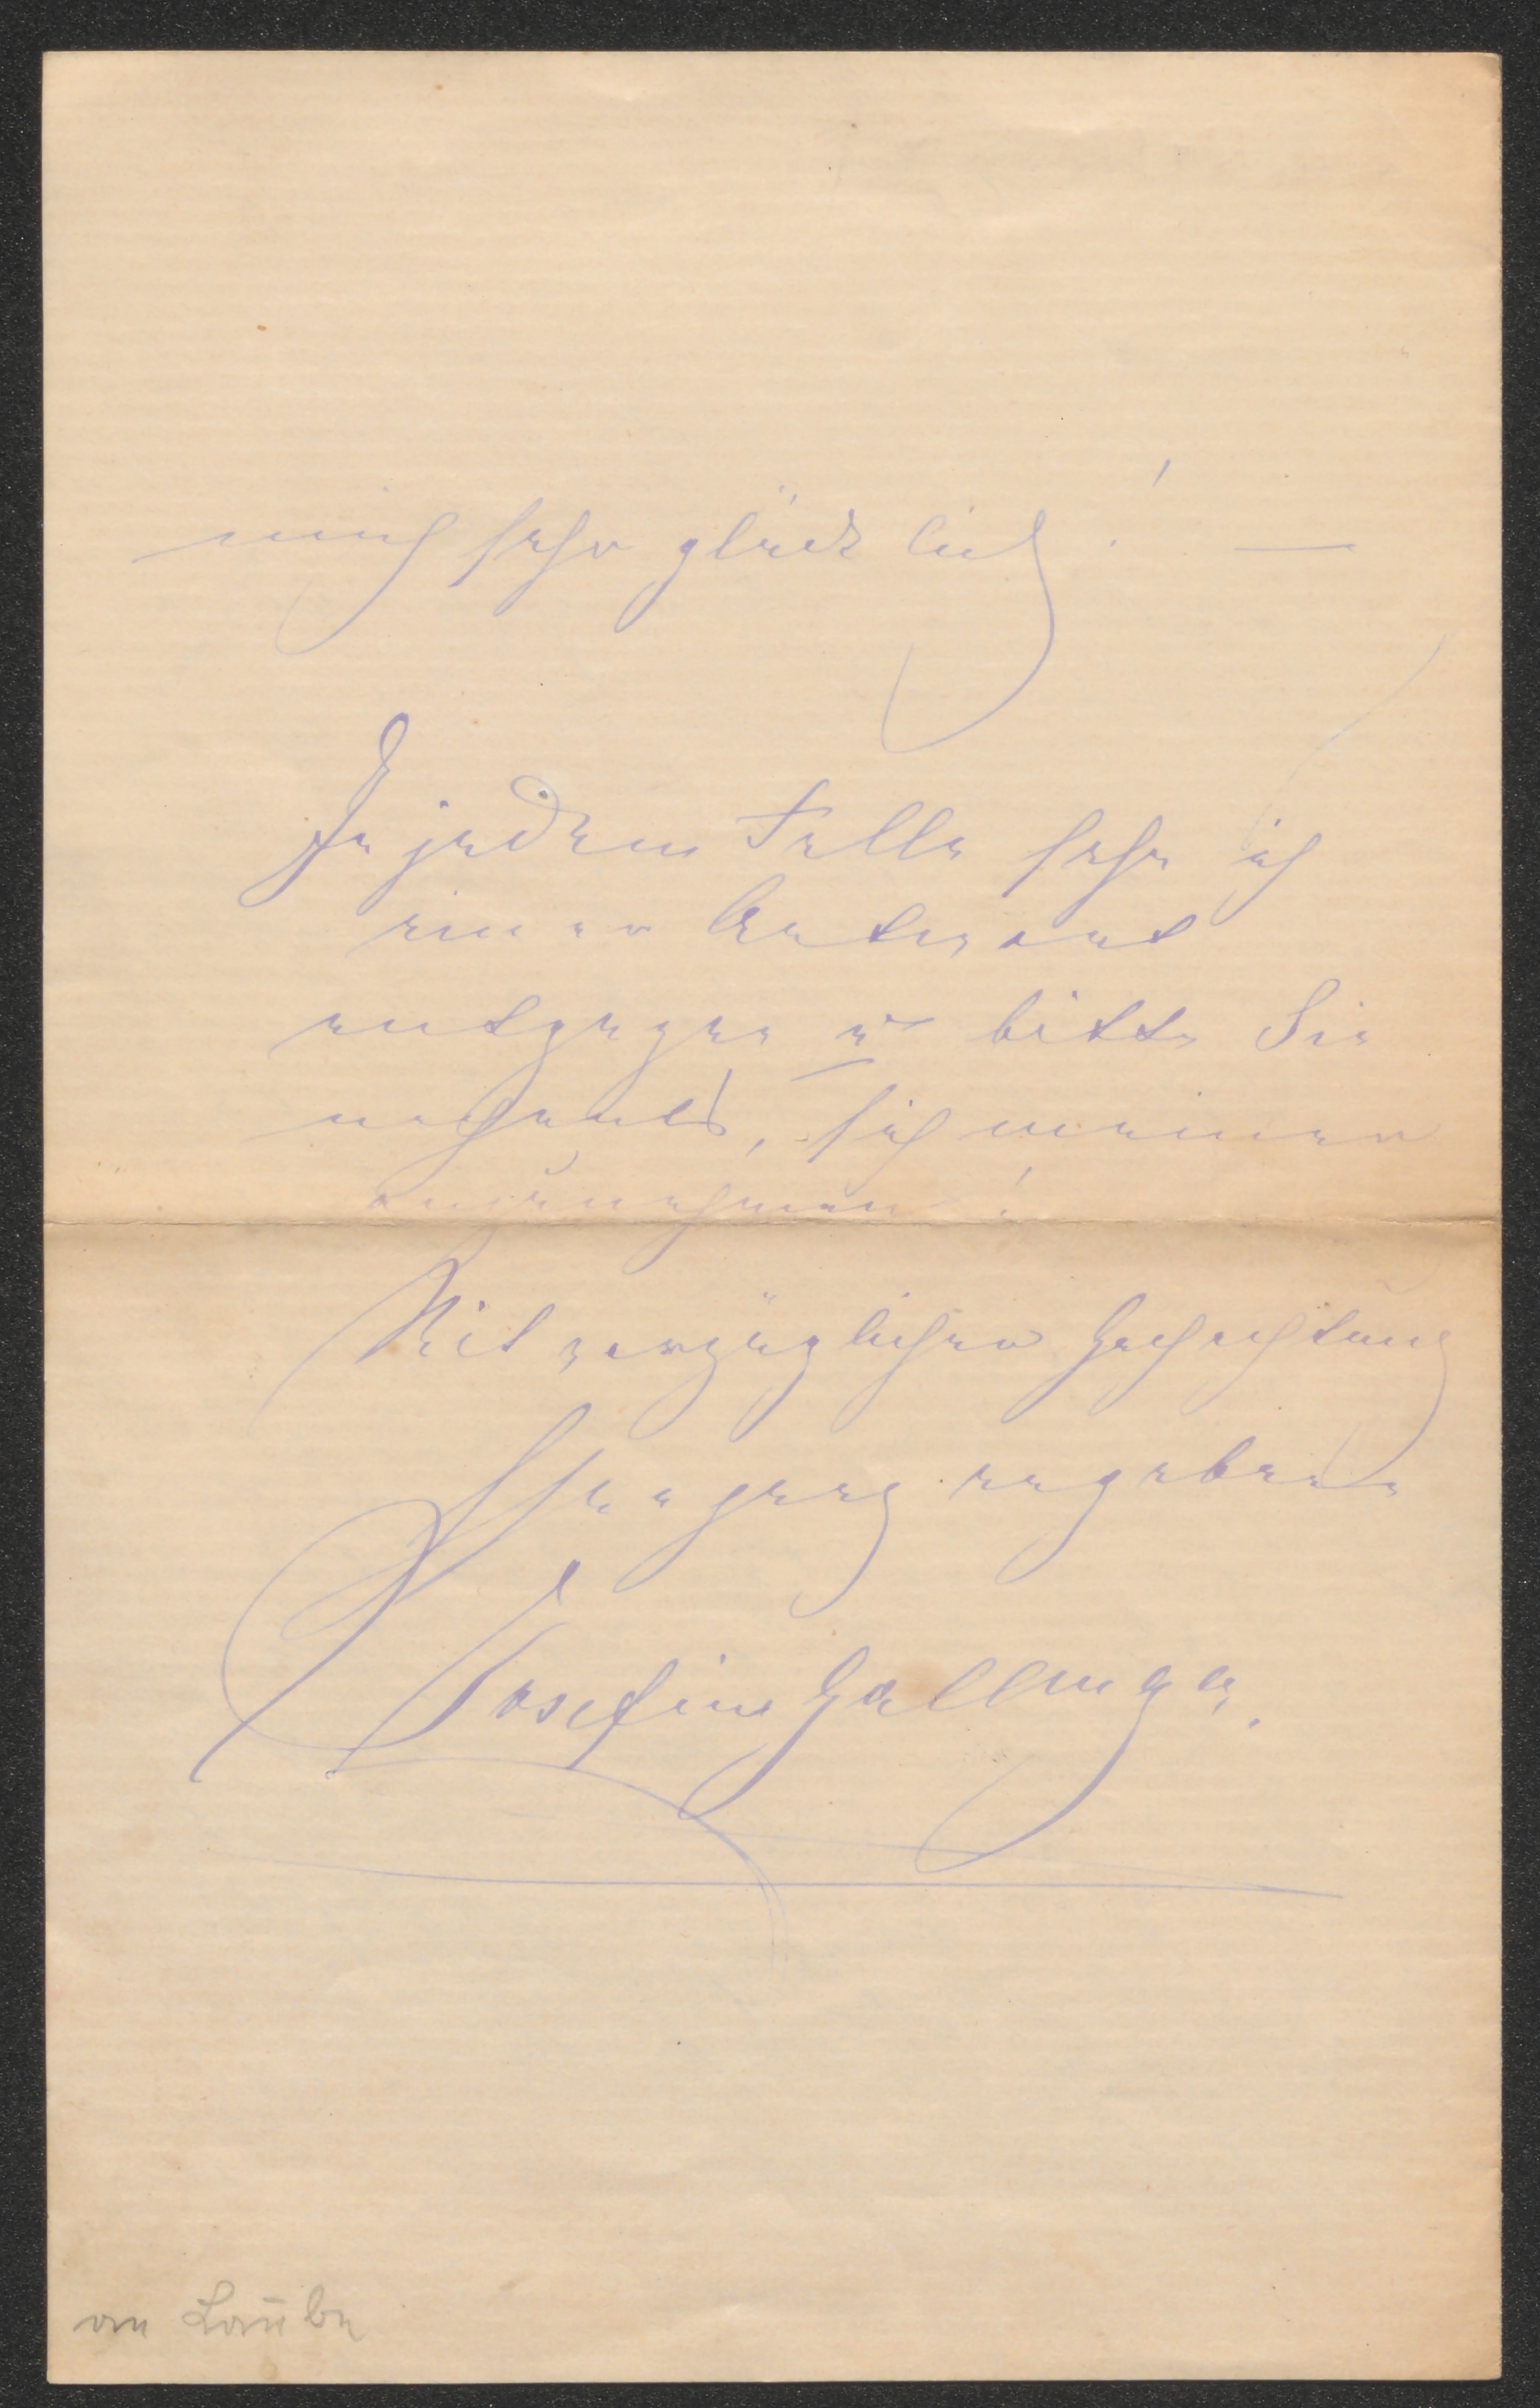 mich sehr glücklich! —
In jedem Falle sehe ich
einer Antwort
entgegen u bitte Sie
nochmals, sich meiner
anzunehmen!
Mit vorzüglicher Hochachtung
ergebene
Josefine Gallmeyer.
an Laube